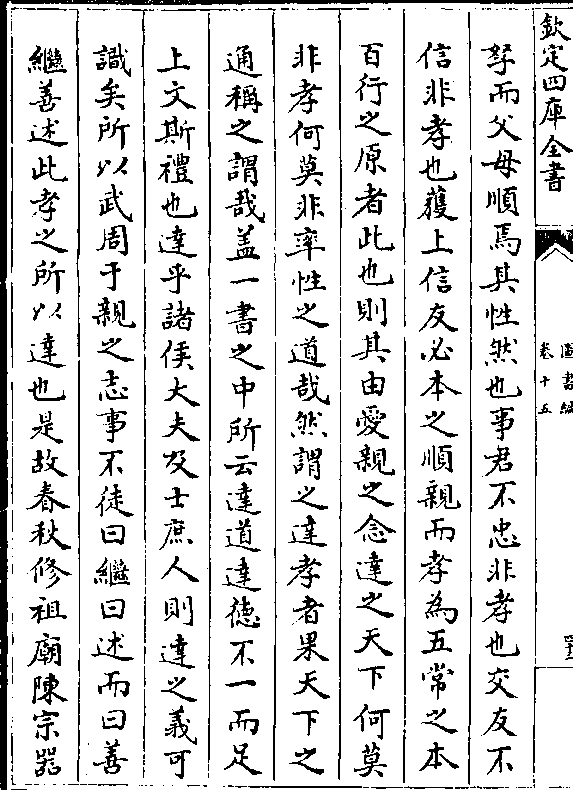 欽定四庫全書
圖書編
卷十五
孥而父母順焉其性然也事君不忠非孝也交友不
信非孝也獲上信友必本之順親而孝為五常之本
百行之原者此也則其由愛親之念達之天下何莫
非孝何莫非率性之道哉然謂之達孝者果天下之
通稱之謂哉盖一書之中所云達道達德不一而足
上文斯禮也達乎諸侯大夫及士庶人則達之義可
識矣所以武周于親之志事不徒曰繼曰述而曰善
繼善述此孝之所以達也是故春秋修祖廟陳宗器